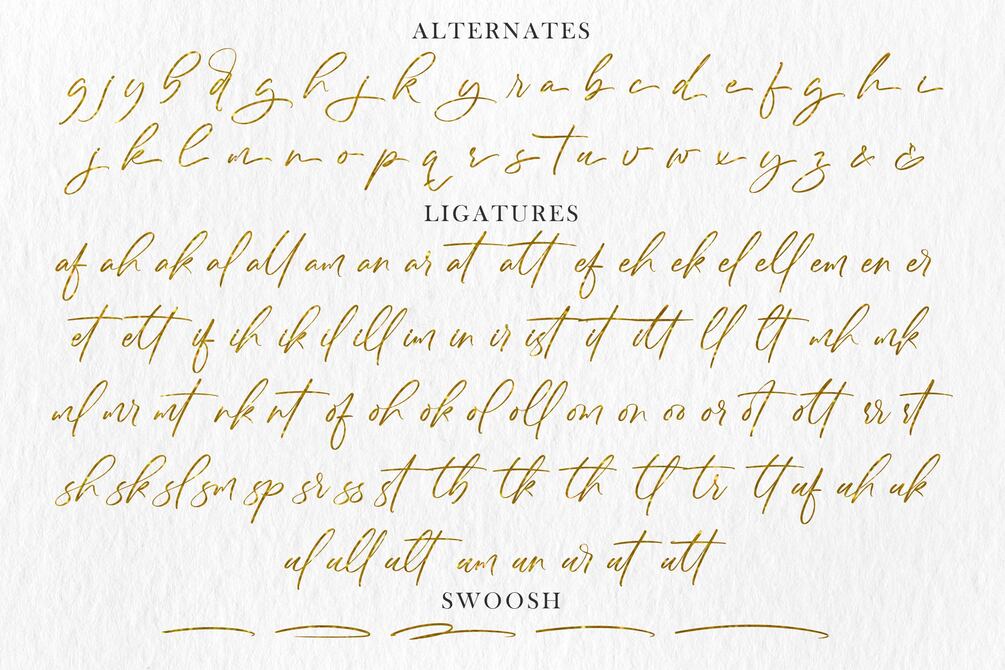 ALTERNATES
g j y b d g h j k y r a b c d e f g h i
j k l m n o p q r s t u v w x y z & &
LIGATURES
af ah ak al all am an ar at att ef eh ek el ell em en er
et ett if ih ik il ill im in ir ist it itt ll lt mh mk
ml mr mt nk nt of oh ok ol oll om on oo or ot ott rr rt
sh sk sl sm sp sr ss st tb tk th tl tr tt uf uh uk
ul ull ult um un ur ut utt
SWOOSH